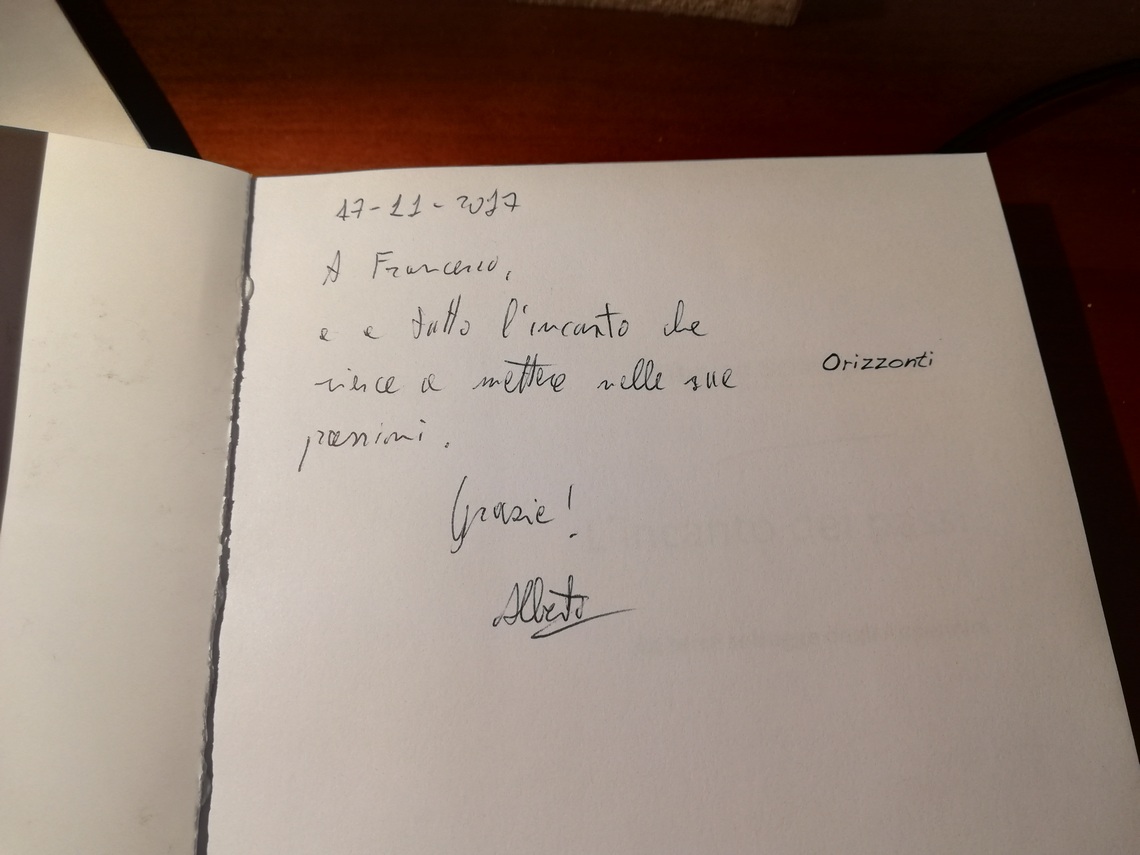 17-11-2017
A Francesco,
e a tutto l'incanto che
riesce a mettere nelle sue
passioni.
Grazie!
Alberto
Orizzonti
L'incanto del